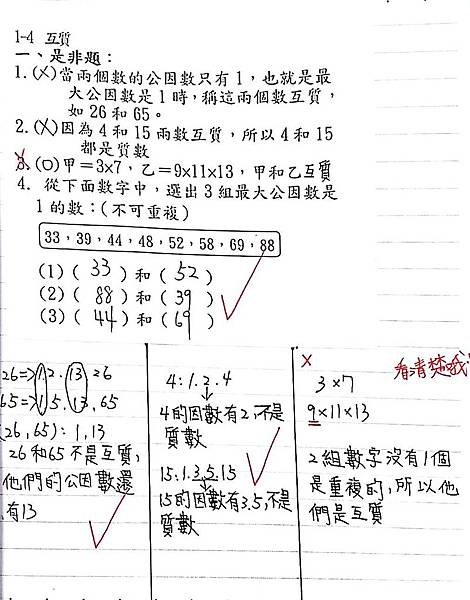 1-4 互質
一、是非題：
1.(X)當兩個數的公因數只有1，也就是最
大公因數是1時，稱這兩個數互質，
如26和65。
2.(X)因為4和15兩數互質，所以4和15
都是質數
3.(O)甲＝3x7，乙＝9x11x13，甲和乙互質
4. 從下面數字中，選出3組最大公因數是
1的數：(不可重複)
33，39，44，48，52，58，69，88
(1) ( 33 ) 和 ( 52 )
(2) ( 88 ) 和 ( 39 )
(3) ( 44 ) 和 ( 69 )
26=>1.2.13.26
65=>1.5.13.65
(26,65)：1,13
26和65不是互質，
他們的公因數還
有13
4：1.2.4
4的因數有2,不是
質數
15：1.3.5.15
15的因數有3.5,不是
質數
X
看清楚哦!
3×7
9×11×13
2組數字沒有1個
是重複的,所以他
們是互質